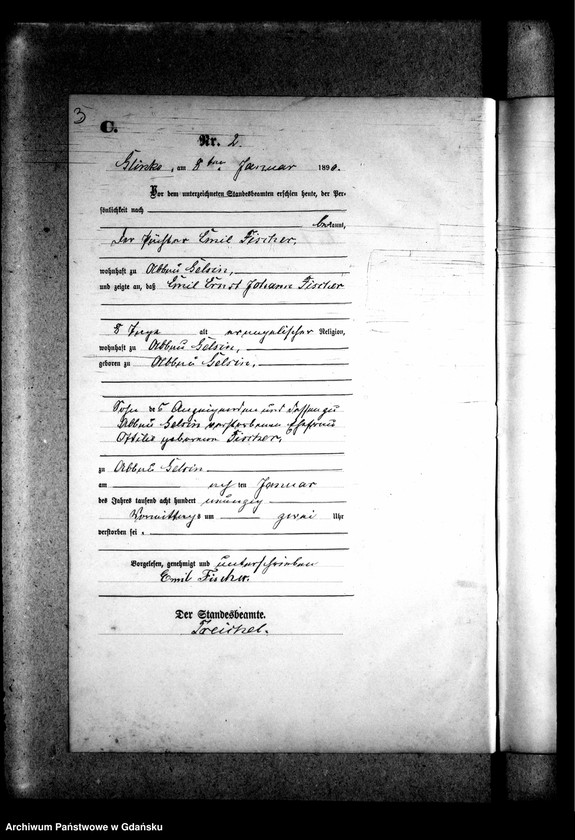 3
C.
Nr. 2.
Glinke, am 8ten Januar 1890.
Vor dem unterzeichneten Standesbeamten erschien heute, der Per-
sönlichkeit nach
bekannt,
der Emil Fischer,
wohnhaft zu Abbau Gelsin,
und zeigte an, daß Emil Ernst Johann Fischer
8 Tage alt evangelischer Religion,
wohnhaft zu Abbau Gelsin,
geboren zu Abbau Gelsin,
Sohn des Anzeigenden und dessen zu
Abbau Gelsin verstorbenen Ehefrau
Ottilie geborenen Fischer,
zu Abbau Gelsin
am ten Januar
des Jahres tausend acht hundert neunzig
Vormittags um zwei Uhr
verstorben sei.
Vorgelesen, genehmigt und unterschrieben
Emil Fischer.
Der Standesbeamte.
Treichel.
Archiwum Państwowe w Gdańsku